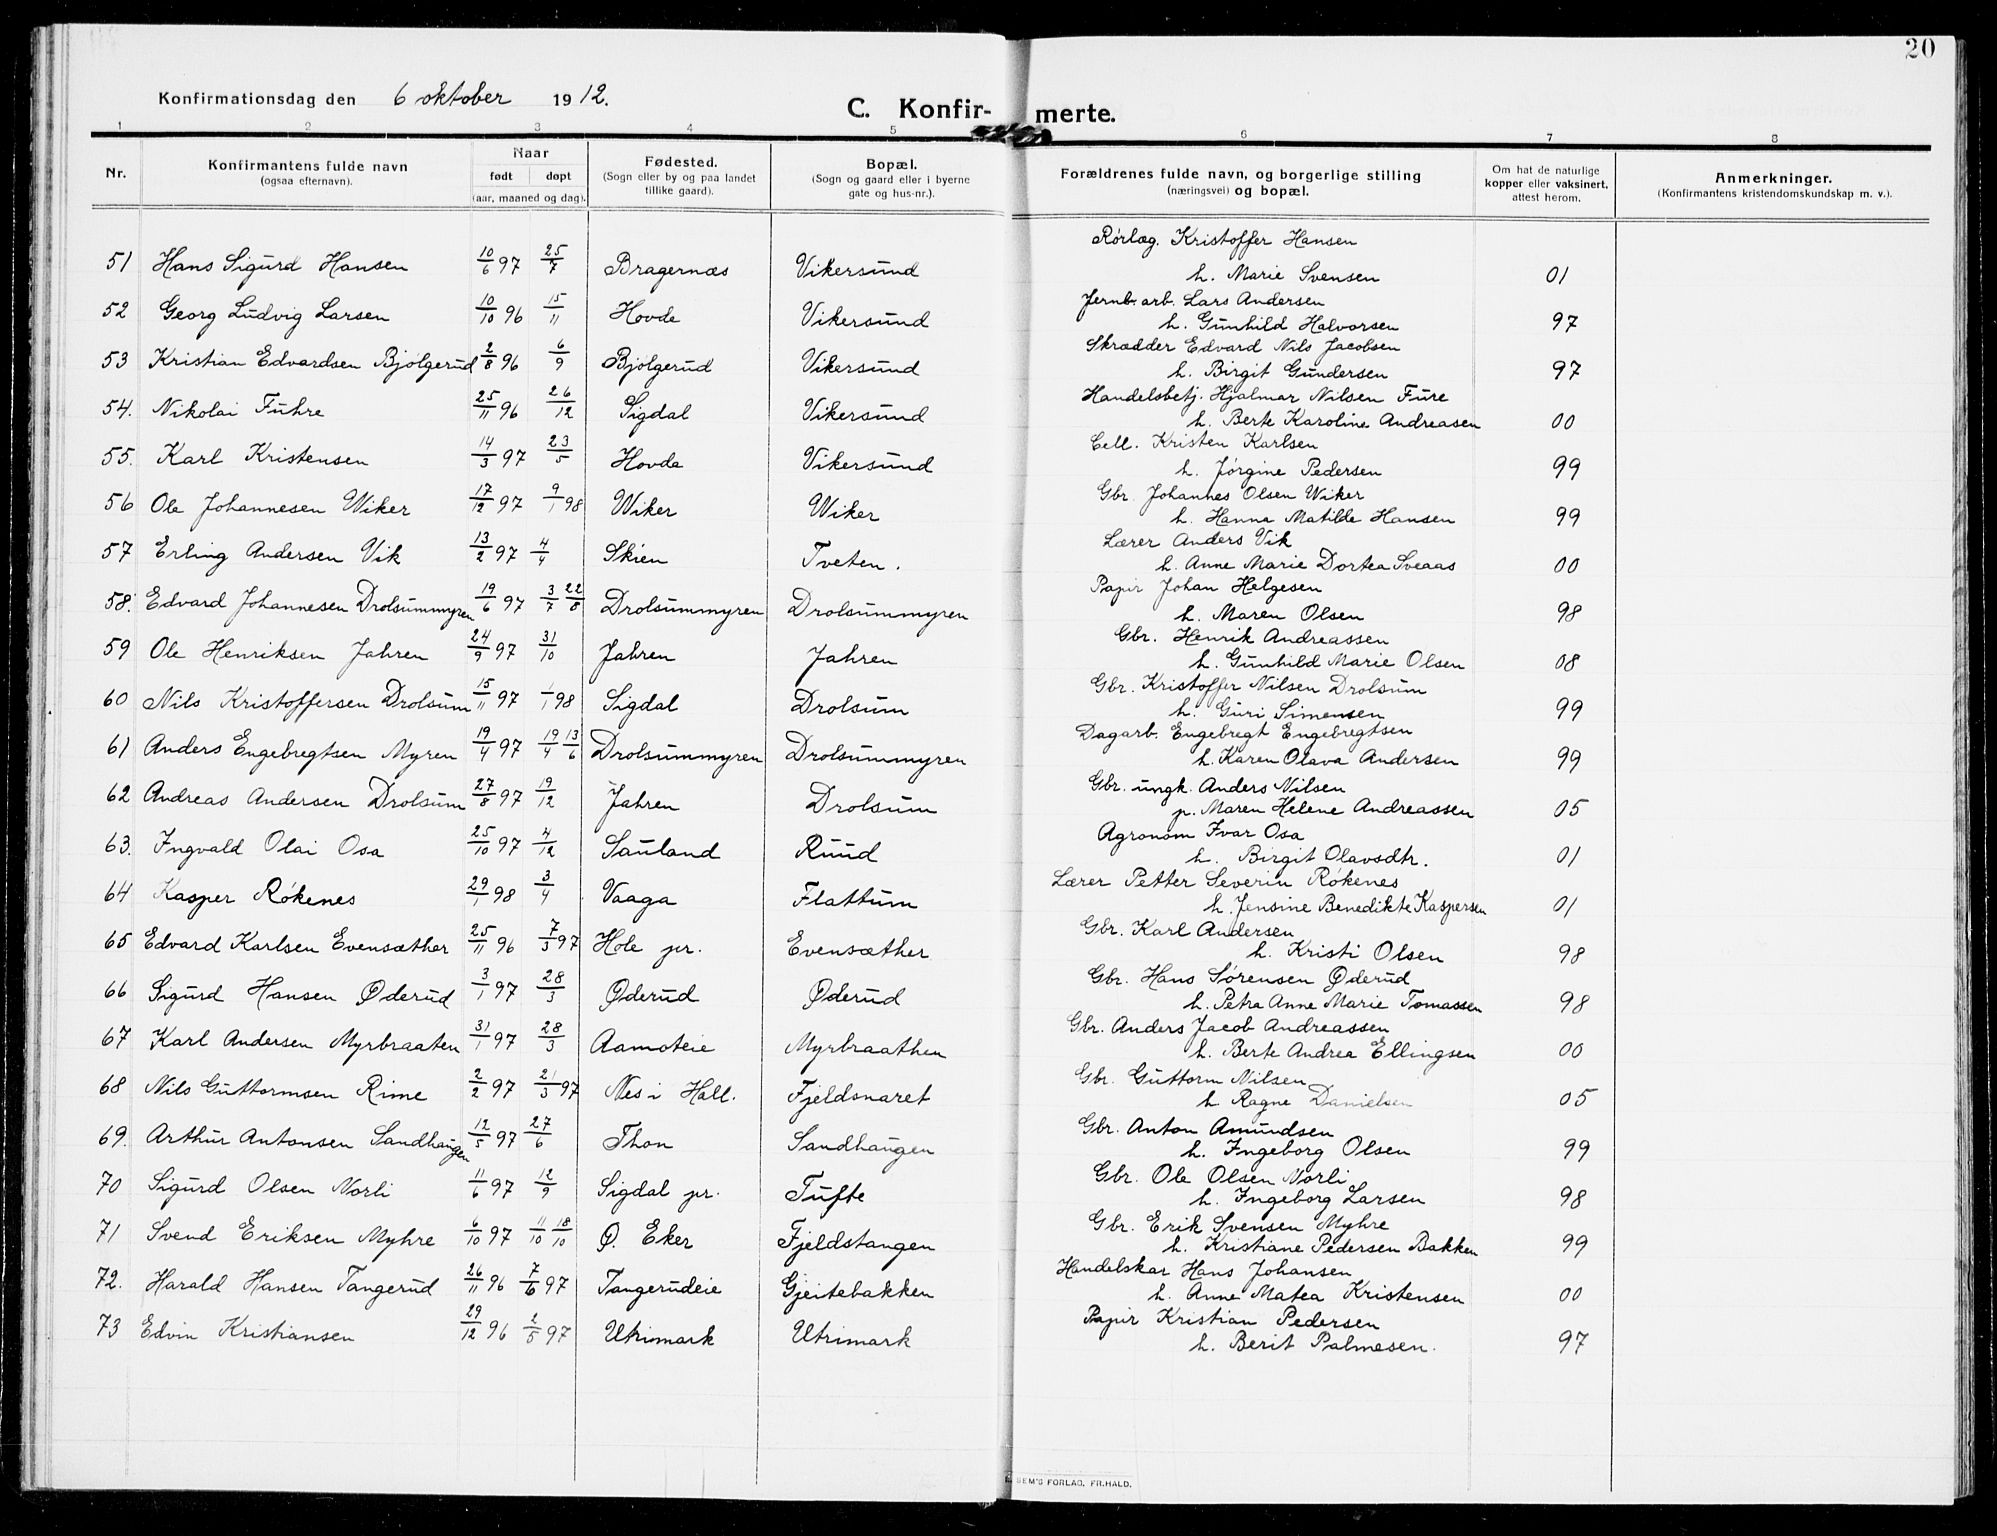 20
Konfirmationsdag den 6 oktober 1912.
C. Konfir- merte.
1 2 3 4 5 6 7 8
Nr. | Konfirmantens fulde navn (ogsaa efternavn). | Naar født døpt (aar, maaned og dag). | Fødested. (Sogn eller by og paa landet tillike gaard). | Bopæl. (Sogn og gaard eller i byerne gate og hus-nr.). | Forældrenes fulde navn, og borgerlige stilling (næringsvei) og bopæl. | Om hat de naturlige kopper eller vaksinert, attest herom. | Anmerkninger. (Konfirmantens kristendomskundskap m. v.).
Rørlæg. Kristoffer Hansen
51 Hans Sigurd Hansen 10/6 97 25/7 Bragernæs Vikersund h. Marie Svensen 01
Jernb. arb. Lars Andersen
52 Georg Ludvig Larsen 10/10 96 15/11 Hovde Vikersund h. Gunhild Halvorsen 97
Skrædder Edvard Nils Jacobsen
53 Kristian Edvardsen Bjølgerud 2/8 96 6/9 Bjølgerud Vikersund h. Birgit Gundersen 97
Handelsbetj. Hjalmar Nilsen Fure
54. Nikolai Fuhre 25/11 96 26/12 Sigdal Vikersund h. Berte Karoline Andreasen 00
Cell. Kristen Karlsen
55. Karl Kristensen 14/3 97 23/5 Hovde Vikersund h. Jørgine Pedersen 99
Gbr. Johannes Olsen Wiker
56 Ole Johannesen Wiker 17/12 97 9/1 98 Wiker Wiker h. Hanna Matilde Hansen 99
Lærer Anders Vik
57 Erling Andersen Vik 13/2 97 4/4 Skien Tveten. h. Anne Marie Dortea Sveaas 00
Papir Johan Helgesen
58. Edvard Johannesen Drolsummyren 19/6 97 3/7 22/8 Drolsummyren Drolsummyren h. Maren Olsen 98
Gbr. Henrik Andreassen
59 Ole Henriksen Jahren 24/9 97 31/10 Jahren Jahren h. Gunhild Marie Olsen 08
Gbr. Kristoffer Nilsen Drolsum
60 Nils Kristoffersen Drolsum 15/11 97 1/1 98 Sigdal Drolsum h. Guri Simensen 99
Dagarb. Engebregt Engebregtsen
61 Anders Engebregtsen Myren 19/4 97 19/4 13/6 Drolsummyren Drolsummyren h. Karen Olava Andersen 99
Gbr. ungk. Anders Nilsen
62 Andreas Andersen Drolsum 27/8 97 19/12 Jahren Drolsum p. Maren Helene Andreassen 05
Agronom Ivar Osa
63. Ingvald Olai Osa 25/10 97 4/12 Sauland Ruud h. Birgit Olavsdtr. 01
Lærer Petter Severin Røkenes
64 Kasper Røkenes 29/1 98 3/4 Vaaga Flattum h. Jensine Benedikte Kaspersen 01
Gbr. Karl Andersen
65 Edvard Karlsen Evensæther 25/11 96 7/3 97 Hole pr. Evensæther h. Kristi Olsen 98
Gbr. Hans Sørensen Øderud
66 Sigurd Hansen Øderud 3/1 97 28/3 Øderud Øderud h. Petra Anne Marie Tomassen 98
Gbr. Anders Jacob Andreassen
67 Karl Andersen Myrbraaten 31/1 97 28/3 Aamoteie Myrbraathen h. Berte Andrea Ellingsen 00
Gbr. Guttorm Nilsen
68 Nils Guttormsen Rime 2/2 97 21/3 97 Nes i Hall. Fjeldsnaret h. Ragne Danielsen 05
Gbr. Anton Amundsen
69. Arthur Antonsen Sandhaugen 12/5 97 27/6 Thon Sandhaugen h. Ingeborg Olsen 99
Gbr. Ole Olsen Norli
70 Sigurd Olsen Norli 11/6 97 12/9 Sigdal pr. Tufte h. Ingeborg Larsen 98
Gbr. Erik Svensen Myhre
71 Svend Eriksen Myhre 6/10 97 11/10 18/10 Ø. Eker Fjeldstangen h. Kristiane Pedersen Bakken 99
Handelskar Hans Johansen
72. Harald Hansen Tangerud 26/11 96 7/6 97 Tangerudeie Gjeitebakken h. Anne Matea Kristensen 00
Papir Kristian Pedersen
73 Edvin Kristiansen 29/12 96 2/5 97 Utrimark Utrimark h. Berit Palmesen. 97
SEM'S FORLAG, FR.HALD.